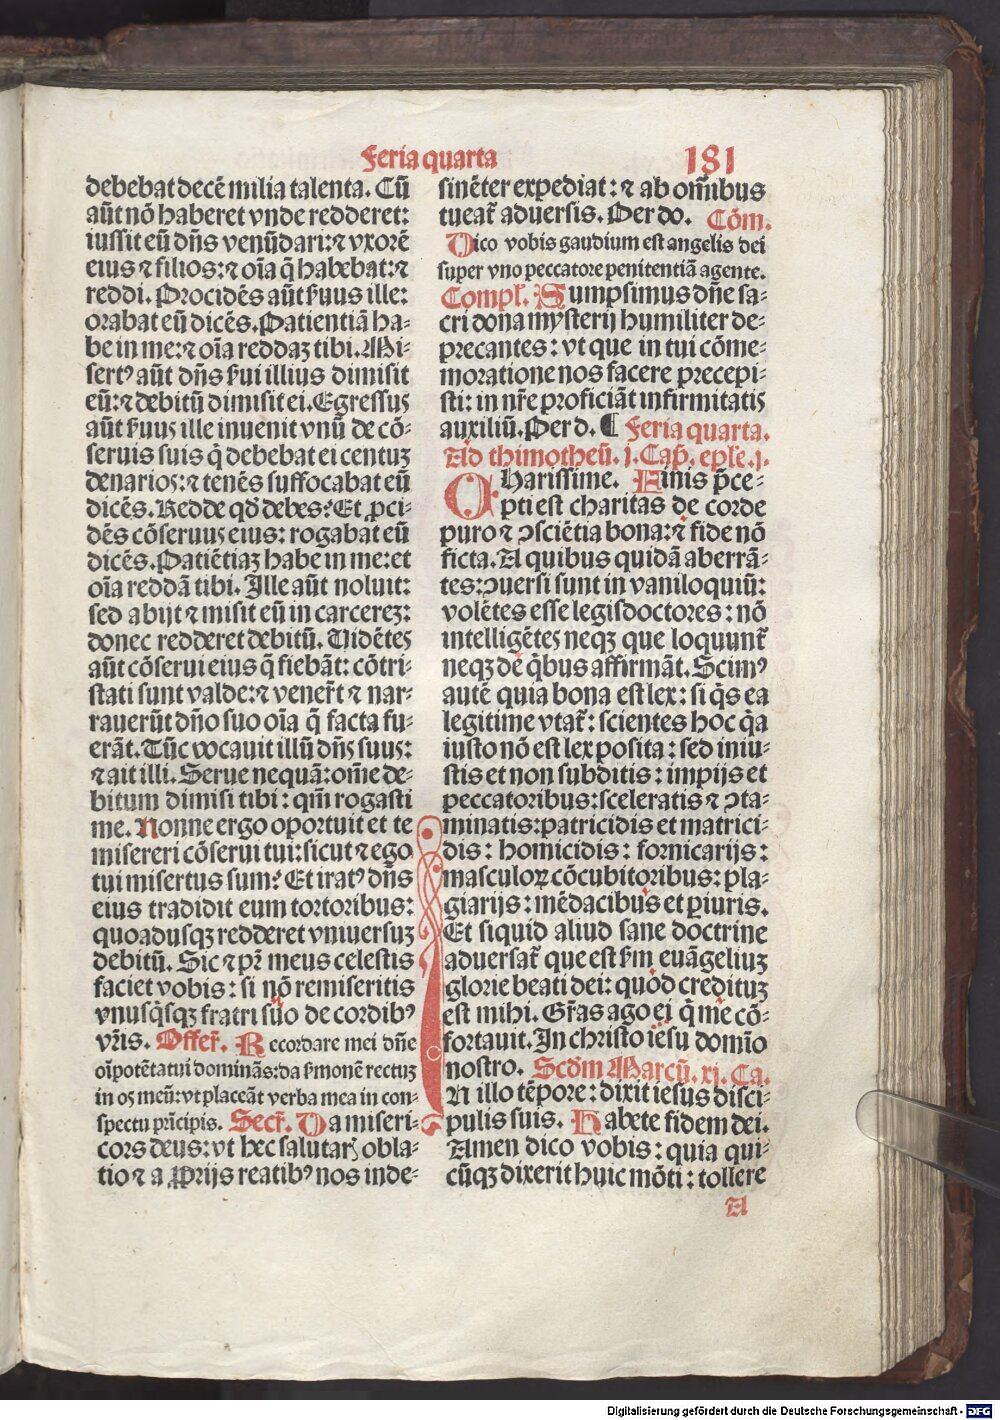 Feria quarta
181
debebat decē milia talenta. Cū
aūt nō haberet vnde redderet:
iussit eū dn̄s venūdari: ⁊ vxorē
eius ⁊ filios: ⁊ oīa q̄ habebat: ⁊
reddi. Procidēs aūt ẜuus ille:
orabat eū dicēs. Patientiā ha-
be in me: ⁊ oīa reddaꝫ tibi. Mi-
sertꝰ aūt dn̄s ẜui illius dimisit
eū: ⁊ debitū dimisit ei. Egressus
aūt ẜuus ille inuenit vnū de cō-
seruis suis q̄ debebat ei centuꝫ
denarios: ⁊ tenēs suffocabat eū
dicēs. Redde qd̄ debes? Et ꝓci-
dēs cōseruus eius: rogabat eū
dicēs. Patiētiaꝫ habe in me: et
oīa reddā tibi. Ille aūt noluit:
sed abijt ⁊ misit eū in carcereꝫ:
donec redderet debitū. Uidētes
aūt cōserui eius q̄ fiebāt: cōtri-
stati sunt valde: ⁊ vener̄t ⁊ nar-
rauerūt dn̄o suo oīa q̄ facta fu-
erāt. Tūc vocauit illū dn̄s suus:
⁊ ait illi. Serue nequā: om̄e de-
bitum dimisi tibi: qm̄ rogasti
me. Nonne ergo oportuit et te
misereri cōserui tui: sicut ⁊ ego
tui misertus sum? Et iratꝰ dn̄s
eius tradidit eum tortoribus:
quoadusqꝫ redderet vniuersuꝫ
debitū. Sic ⁊ pr̄ meus celestis
faciet vobis: si nō remiseritis
vnusq̄sqꝫ fratri suo de cordibꝰ
vr̄is. Offer̄. Recordare mei dn̄e
oīpotētatui dominās: da ẜmonē rectuꝫ
in os meū: vt placeāt verba mea in con-
spectu pr̄icipis. Secr̄. Da miseri-
cors deus: vt hec salutaris obla-
tio ⁊ a ꝓprijs reatibꝰ nos inde-
sinēter expediat: ⁊ ab om̄ibus
tueat̄ aduersis. Per do. Cōm.
Dico vobis gaudium est angelis dei
super vno peccatore penitentiā agente.
Compl̄. Sumpsimus dn̄e sa-
cri dona mysterij humiliter de-
precantes: vt que in tui cōme-
moratione nos facere precepi-
sti: in nr̄e proficiāt infirmitatis
auxiliū. Per d. ¶ Feria quarta.
Ad thimotheū. j. Cap̄. epl̄e. j.
Charissime. Finis p̄ce-
pti est charitas de corde
puro ⁊ ꝯsciētia bona: ⁊ fide nō
ficta. A quibus quidā aberrā-
tes: ꝯuersi sunt in vaniloquiū:
volētes esse legisdoctores: nō
intelligētes neqꝫ que loquunt̄
neqꝫ de q̄bus affirmāt. Scimꝰ
autē quia bona est lex: si q̄s ea
legitime vtat̄: scientes hoc q̄a
iusto nō est lex posita: sed iniu-
stis et non subditis: impijs et
peccatoribus: sceleratis ⁊ ꝯta-
minatis: patricidis et matrici-
dis: homicidis: fornicarijs:
masculoꝝ cōcubitoribus: pla-
giarijs: mēdacibus et ꝑiuris.
Et siquid aliud sane doctrine
aduersat̄ que est ẜm euāgeliuꝫ
glorie beati dei: quod credituꝫ
est mihi. Gr̄as ago ei q̄ me cō-
fortauit. In christo iesu domīo
nostro. Scd̄m Marcū. xj. Ca.
In illo tēpore: dixit iesus disci-
pulis suis. Habete fidem dei.
Amen dico vobis: quia qui-
cūqꝫ dixerit huic mōti: tollere
A
Digitalisierung gefördert durch die Deutsche Forschungsgemeinschaft - DFG